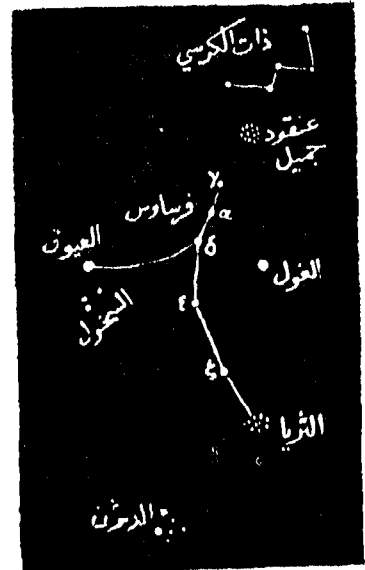 ذات الكرسي
عنقود
جميل
γ
فرساوس
α
العيوق
δ
الغول
السخول
ε
ζ
الثريا